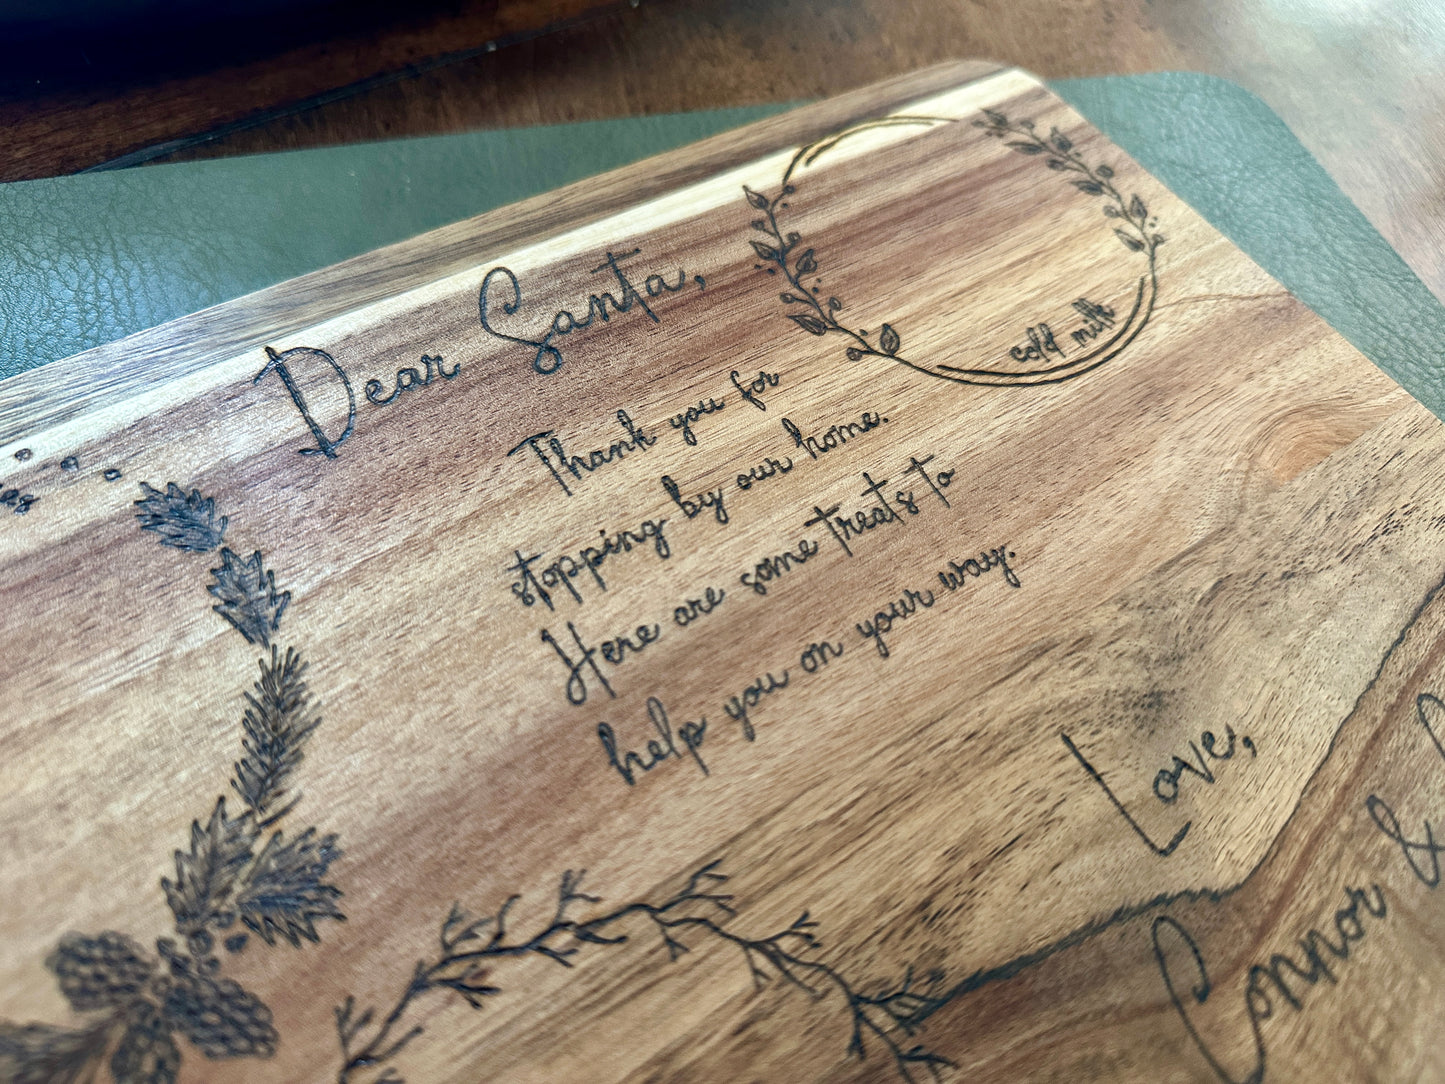 Dear Santa,
cold milk
Thank you for
stopping by our home.
Here are some treats to
help you on your way.
Love,
Connor &